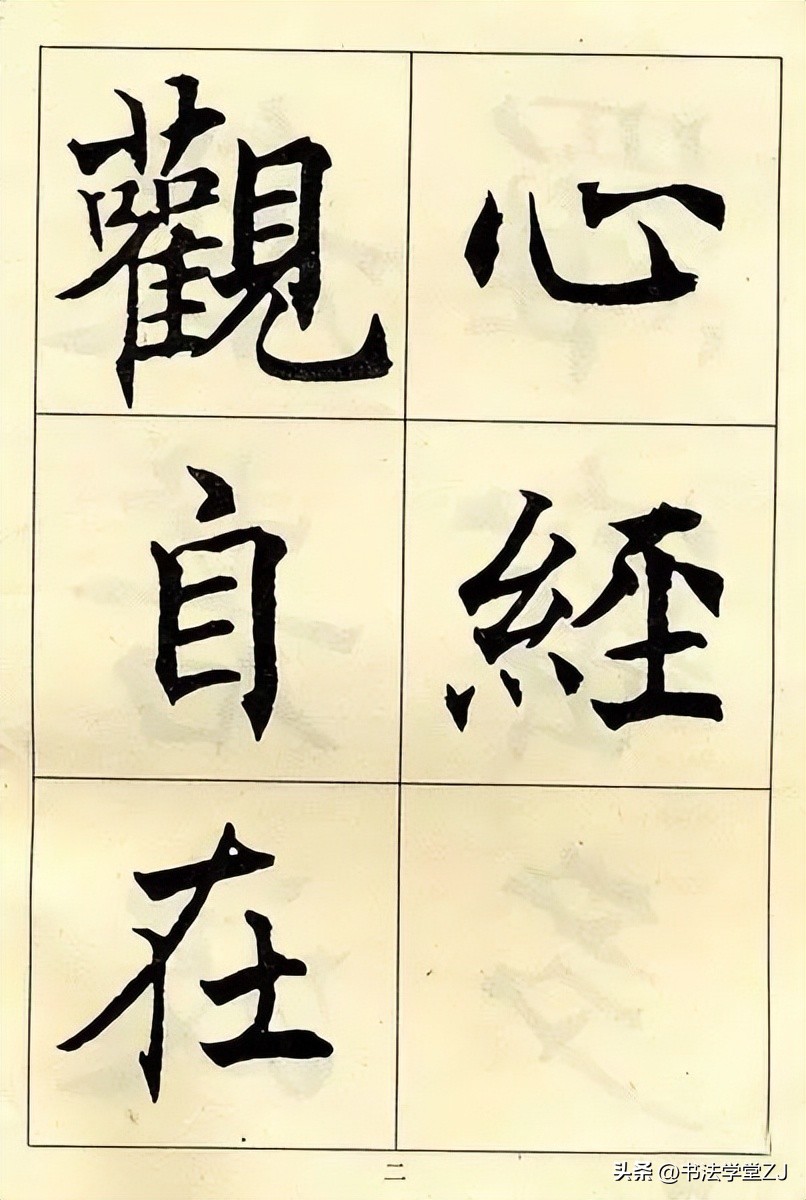 心經
觀自在
二
头条 @书法学堂ZJ